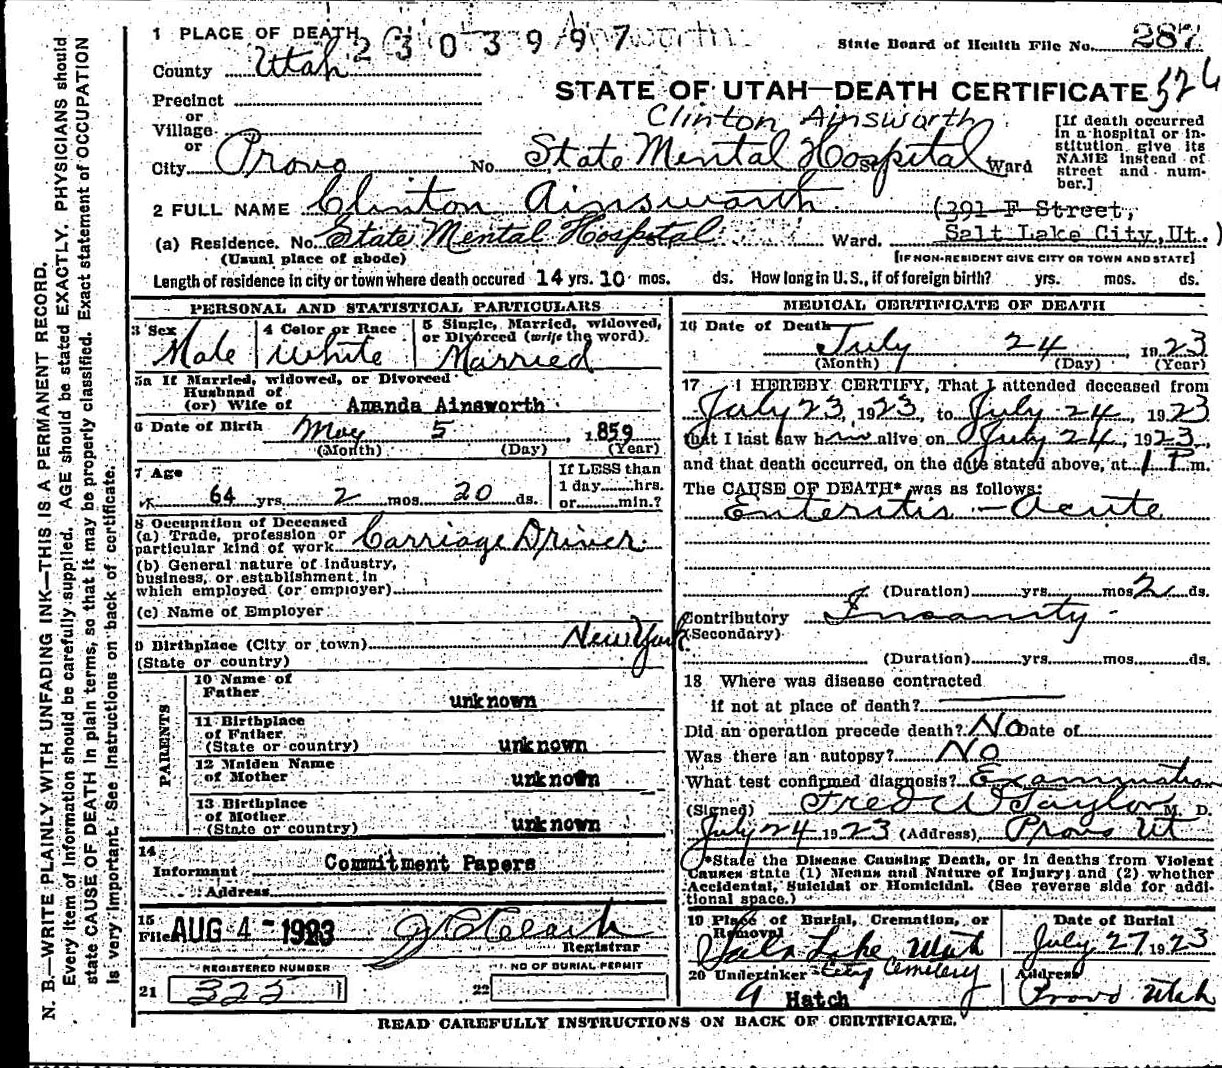 1 PLACE OF DEATH
2303997
Clinton Ainsworth
State Board of Health File No. 287
County Utah
STATE OF UTAH—DEATH CERTIFICATE 526
Precinct
or
Village
or
City Provo No. State Mental Hospital St. Ward
Clinton Ainsworth
[If death occurred in a hospital or institution, give its NAME instead of street and number.]
2 FULL NAME Clinton Ainsworth
(391 F Street, Salt Lake City, Ut.)
(a) Residence. No. State Mental Hospital Ward.
(Usual place of abode)
[IF NON-RESIDENT GIVE CITY OR TOWN AND STATE]
Length of residence in city or town where death occured 14 yrs. 10 mos. ds. How long in U.S., if of foreign birth? yrs. mos. ds.
PERSONAL AND STATISTICAL PARTICULARS
3 Sex Male
4 Color or Race White
5 Single, Married, widowed, or Divorced (write the word). Married
5a If Married, widowed, or Divorced
Husband of
(or) Wife of Amanda Ainsworth
6 Date of Birth May 5, 1859
(Month) (Day) (Year)
7 Age 64 yrs. 2 mos. 20 ds.
If LESS than
1 day hrs.
or min.?
8 Occupation of Deceased
(a) Trade, profession or
particular kind of work Carriage Driver
(b) General nature of industry,
business, or establishment in
which employed (or employer)
(c) Name of Employer
9 Birthplace (City or town) New York
(State or country)
PARENTS
10 Name of
Father unknown
11 Birthplace
of Father
(State or country) unknown
12 Maiden Name
of Mother unknown
13 Birthplace
of Mother
(State or country) unknown
14
Informant Commitment Papers
Address
15
Filed AUG 4 - 1923
Registrar
REGISTERED NUMBER
21 325
NO OF BURIAL PERMIT
22
MEDICAL CERTIFICATE OF DEATH
16 Date of Death July 24, 1923
(Month) (Day) (Year)
17 I HEREBY CERTIFY, That I attended deceased from
July 23, 1923, to July 24, 1923
that I last saw him alive on July 24, 1923,
and that death occurred, on the date stated above, at 1 P m.
The CAUSE OF DEATH* was as follows:
Enteritis - Acute
(Duration) yrs. mos. 2 ds.
Contributory Insanity
(Secondary)
(Duration) yrs. mos. ds.
18 Where was disease contracted
if not at place of death?
Did an operation precede death? No Date of
Was there an autopsy? No
What test confirmed diagnosis? Examination
(Signed) Fred W Taylor M. D.
July 24 1923 (Address) Provo Ut
*State the Disease Causing Death, or in deaths from Violent
Causes state (1) Means and Nature of Injury; and (2) whether
Accidental, Suicidal or Homicidal. (See reverse side for addi-
tional space.)
19 Place of Burial, Cremation, or
Removal
Salt Lake Utah
City Cemetery
Date of Burial
July 27, 1923
20 Undertaker
Hatch
Address
Provo Utah
READ CAREFULLY INSTRUCTIONS ON BACK OF CERTIFICATE.
N. B.—WRITE PLAINLY WITH UNFADING INK—THIS IS A PERMANENT RECORD.
Every item of information should be carefully supplied. AGE should be stated EXACTLY. PHYSICIANS should
state CAUSE OF DEATH in plain terms, so that it may be properly classified. Exact statement of OCCUPATION
is very important. See instructions on back of certificate.